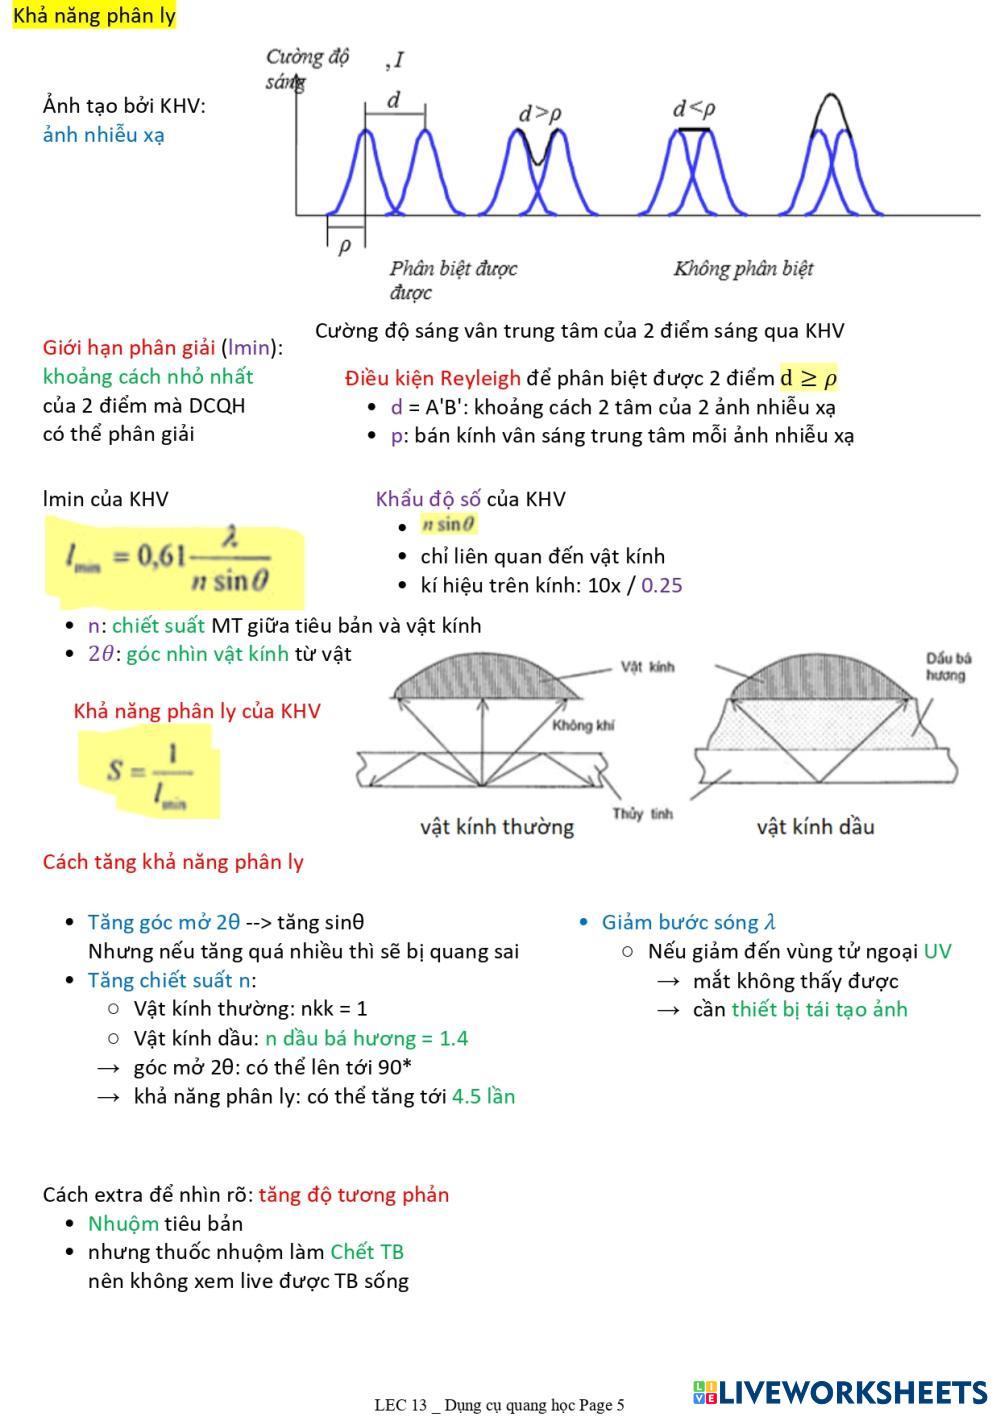 Khả năng phân ly
Cường độ , I
sáng
Ảnh tạo bởi KHV:
ảnh nhiễu xạ
d
d>ρ
d<ρ
ρ
Phân biệt được
được
Không phân biệt
Cường độ sáng vân trung tâm của 2 điểm sáng qua KHV
Giới hạn phân giải (lmin):
khoảng cách nhỏ nhất
của 2 điểm mà DCQH
có thể phân giải
Điều kiện Reyleigh để phân biệt được 2 điểm d ≥ ρ
• d = A'B': khoảng cách 2 tâm của 2 ảnh nhiễu xạ
• p: bán kính vân sáng trung tâm mỗi ảnh nhiễu xạ
lmin của KHV
l min = 0,61 λ / n sinθ
Khẩu độ số của KHV
• n sinθ
• chỉ liên quan đến vật kính
• kí hiệu trên kính: 10x / 0.25
• n: chiết suất MT giữa tiêu bản và vật kính
• 2θ: góc nhìn vật kính từ vật
Khả năng phân ly của KHV
S = 1 / l min
Vật kính
Không khí
Thủy tinh
Dầu bá
hương
vật kính thường
vật kính dầu
Cách tăng khả năng phân ly
• Tăng góc mở 2θ --> tăng sinθ
Nhưng nếu tăng quá nhiều thì sẽ bị quang sai
• Tăng chiết suất n:
○ Vật kính thường: nkk = 1
○ Vật kính dầu: n dầu bá hương = 1.4
→ góc mở 2θ: có thể lên tới 90*
→ khả năng phân ly: có thể tăng tới 4.5 lần
• Giảm bước sóng λ
○ Nếu giảm đến vùng tử ngoại UV
→ mắt không thấy được
→ cần thiết bị tái tạo ảnh
Cách extra để nhìn rõ: tăng độ tương phản
• Nhuộm tiêu bản
• nhưng thuốc nhuộm làm Chết TB
nên không xem live được TB sống
LEC 13 _ Dụng cụ quang học Page 5
LIVE LIVEWORKSHEETS